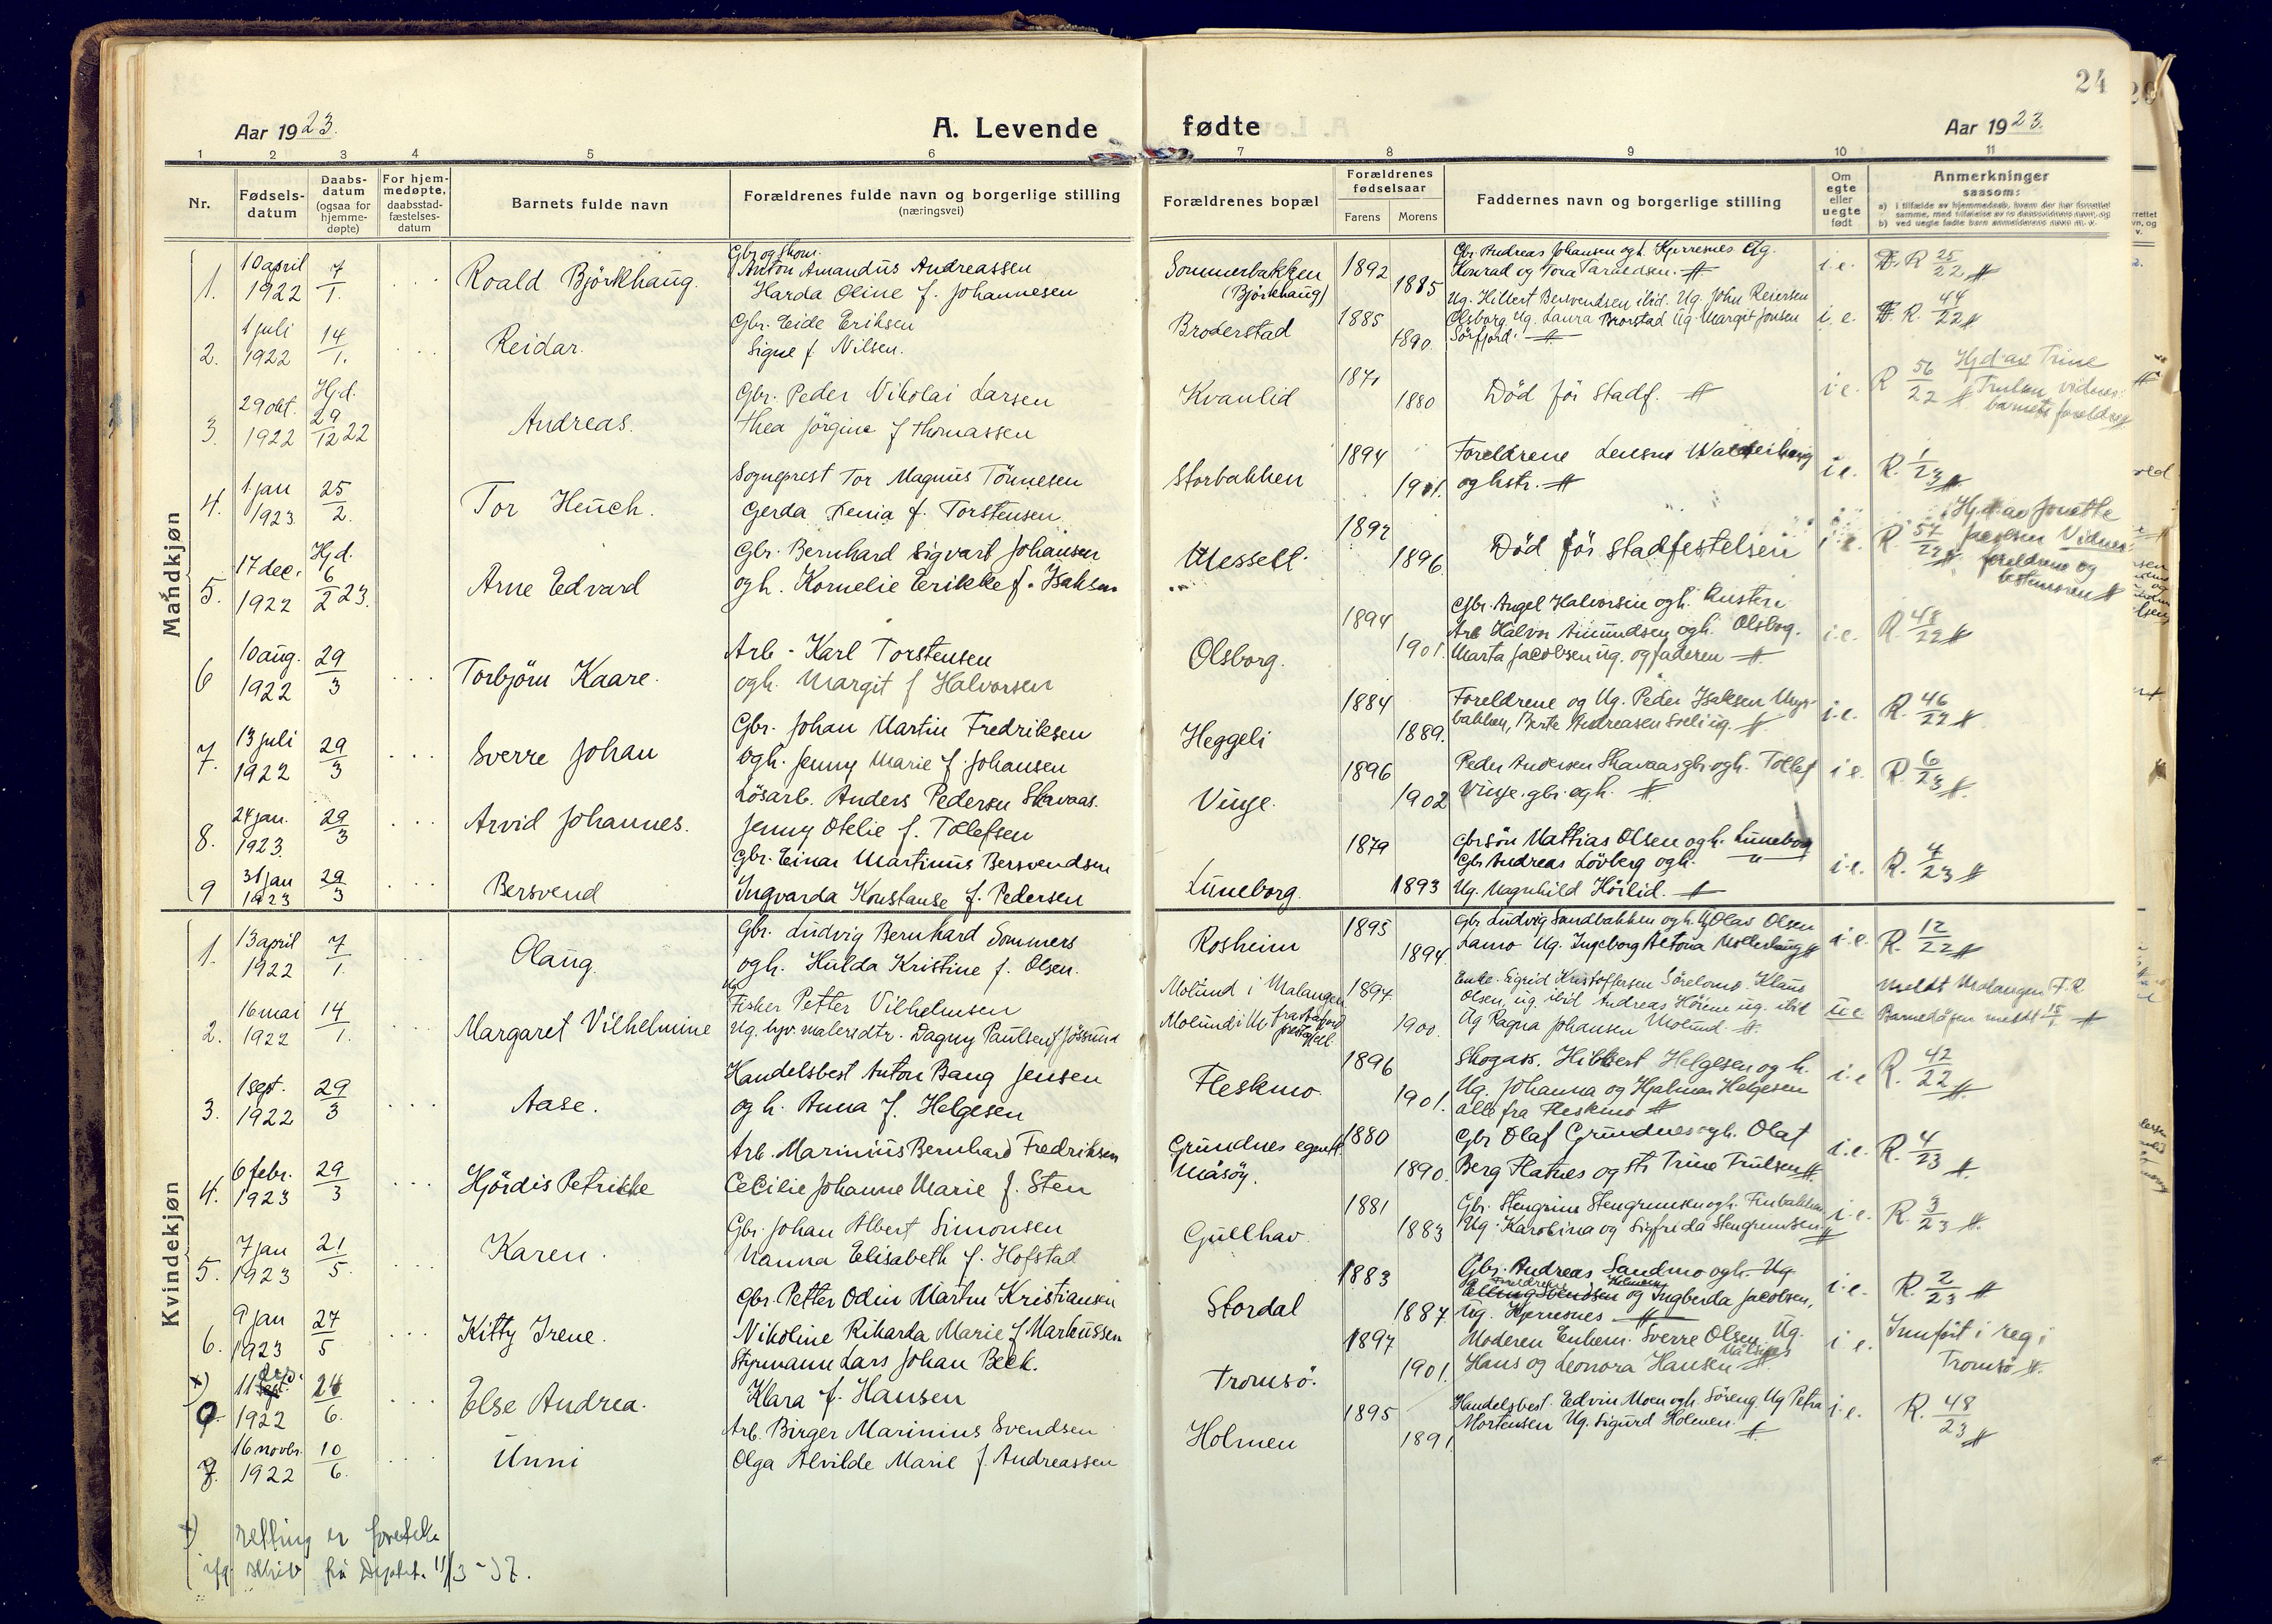 24
Aar 1923.
A. Levende fødte
Aar 1923.
1 2 3 4 5 6 7 8 9 10 11
Nr.
Fødselsdatum
Daabsdatum (ogsaa for hjemmedøpte)
For hjemmedøpte, daabsstadfæstelsesdatum
Barnets fulde navn
Forældrenes fulde navn og borgerlige stilling
(næringsvei)
Forældrenes bopæl
Forældrenes fødselsaar
Farens Morens
Faddernes navn og borgerlige stilling
Om egte eller uegte født
Anmerkninger
saasom:
Mandkjøn
1. 10 april 1922 7/1. Roald Björkhaug.
Gbr og skom. Anton Amandus Andreassen
Harda Oline f. Johannesen
Sommerbakken (Björkhaug) 1892 1885
Gbr Andreas Johansen ogh. Kjerresnes Ug.
Konrad og Tora
i.e. R 25/22
2. 1 juli 1922 14/1. Reidar.
Gbr. Eide Eriksen
Signe f. Nilsen.
Broderstad 1885 1890.
Ug. Hilbert Bersvendsen ibid. Ug. John Reiersen
Olsborg Ug. Laura Brorstad Ug. Margit Jonsen
Sörfjord.
i.e. R. 44/22
3. 29 okt. 1922 Hj.d. 29/12 22 Andreas.
Gbr. Peder Nikolai Larsen
Thea Jörgine f Thomassen
Kvanlid 1871 1880
Död för Stadf.
i.e. R 56/22 Hjd av Trine
Trulsen, vidner:
barnets foreldre
4. 1. jan 1923. 25/2. Tor Heuch.
Sogneprest Tor Magnus Tönnesen
Gerda Xenia f. Torstensen
Storbakken 1894 1901.
Foreldrene Lensm
og hstr.
i.e. R. 1/23
5. 17 dec. 1922 Hj.d. 6/2 23. Arne Edvard
Gbr. Bernhard Sigvart Johansen
ogh. Kornelie Erikke f. Isaksen
Messelt. 1892 1896
Död för Stadfestelsen
i.e. R. 57/22 Hj.d. av Jonette
Jacobsen Vidner:
foreldrene og
bestemoren
6 10 aug. 1922 29/3 Torbjörn Kaare.
Arb. Karl Torstensen
ogh. Margit f Halvorsen
Olsborg. 1894 1901.
Gbr. Angel Halvorsen ogh.
Arb Halvor Amundsen ogh. Olsborg.
Marta Jacobsen ug. og faderen
i.e. R. 48/22
7. 13 juli 1922 29/3 Sverre Johan
Gbr. Johan Martin Fredriksen
ogh. Jenny Marie f. Johansen
Heggeli 1884 1889.
Foreldrene og Ug. Peder Isaksen
bakken, Berte Andreasen ug.
i.e. R. 46/22
8. 24 jan. 1923. 29/3 Arvid Johannes.
Lösarb. Anders Pedersen Skavaas.
Jenny Otelie f. Tollefsen
Vinje. 1896 1902
Peder Andersen Skavaas gbr ogh. Tollef
Vinje. gbr. ogh.
i.e. R. 6/23
9 31 jan 1923 29/3 Bersvend
Gbr. Einar Martinus Bersvendsen
Ingvarda Konstanse f. Pedersen
Luneborg. 1879 1893
Gbr sön Mattias Olsen ogh. Luneborg
Gbr Andreas Lövberg ogh. "
Ug. Magnhild Höilid.
i.e. R. 4/23
Kvindekjøn
1. 13 april 1922 7/1. Olaug.
Gbr. Ludvig Bernhard Sommers
ogh. Hulda Kristine f. Olsen.
Rosheim 1895 1894.
Gbr Ludvig Sandbakken ogh. Ug Olav Olsen
Ug. Ingeborg
i.e. R. 12/22
2. 16 mai 1922 14/1. Margaret Vilhelmine
Ug Fisker Petter Vilhelmsen
Ug. hjv. malersdtr. Dagny Paulsen f Jössund
Molund i Malangen
Molund i M. 1894. 1900.
Enke. Sigrid Kristoffersen Klaus
Olsen, ug. ibid Andreas ug. ibid
Ug Ragna Johansen Molund
u.e. Meldt Malangen F.R
Barnedåpen meldt
3. 1 sept. 1922 29/3 Aase.
Handelsbest Anton Bang Jensen
ogh. Anna f. Helgesen
Fleskmo. 1896 1901.
Skogas. Hilbert Helgesen og h.
Ug. Johanna og Hjalmar Helgesen
alle fra Fleskmo
i.e R. 42/22
4. 6 febr. 1923 29/3 Hjördis Petrikke
Arb. Marinius Bernhard Fredriksen
Cecilie Johanne Marie f. Sten
Grundnes egentl.
Måsöy. 1880 1890.
Gbr Olaf Grundnes ogh. Olaf
Berg Flatnes og Trine Trulsen
i.e. R. 4/23
5. 7 jan 1923 21/5. Karen.
Gbr. Johan Albert Simonsen
Nanna Elisabeth f. Hofstad
Gullhav. 1881 1883
Gbr. Stengrim Stengrimsen ogh. Finbakken
Ug. Karolina og Sigfrida Stengrimsen
i.e. R. 3/23
6. 9 jan 1923 27/5 Kitty Irene.
Gbr. Petter Odin Martin Kristiansen
Nikoline Rikarda Marie f Markussen
Stordal 1883 1887.
Gbr. Andreas Sandmo ogh. Ug.
og Ingberda Jacobsen,
Ug. Kjerresnes
i.e. R. 2/23
x) 11 1922 24/6. Else Andrea.
Styrmann Lars Johan Beck.
Klara f. Hansen
Tromsö. 1897 1901.
Moderen Enkem. Sverre Olsen, Ug.
Hans og Leonora Hansen
i.e. Innfört i reg i
Tromsö
16 novbr. 1922 10/6. Unni
Arb. Birger Marinius Svendsen
Olga Alvilde Marie f. Andreassen
Holmen 1895 1891
Handelsbest. Edvin Moen ogh. Söreng. Ug Petra
Mortensen Ug. Sigurd Holmen.
i.e. R. 48/23
x) retting er foretatt
ifg. skriv fra Dept. 11/3-37.